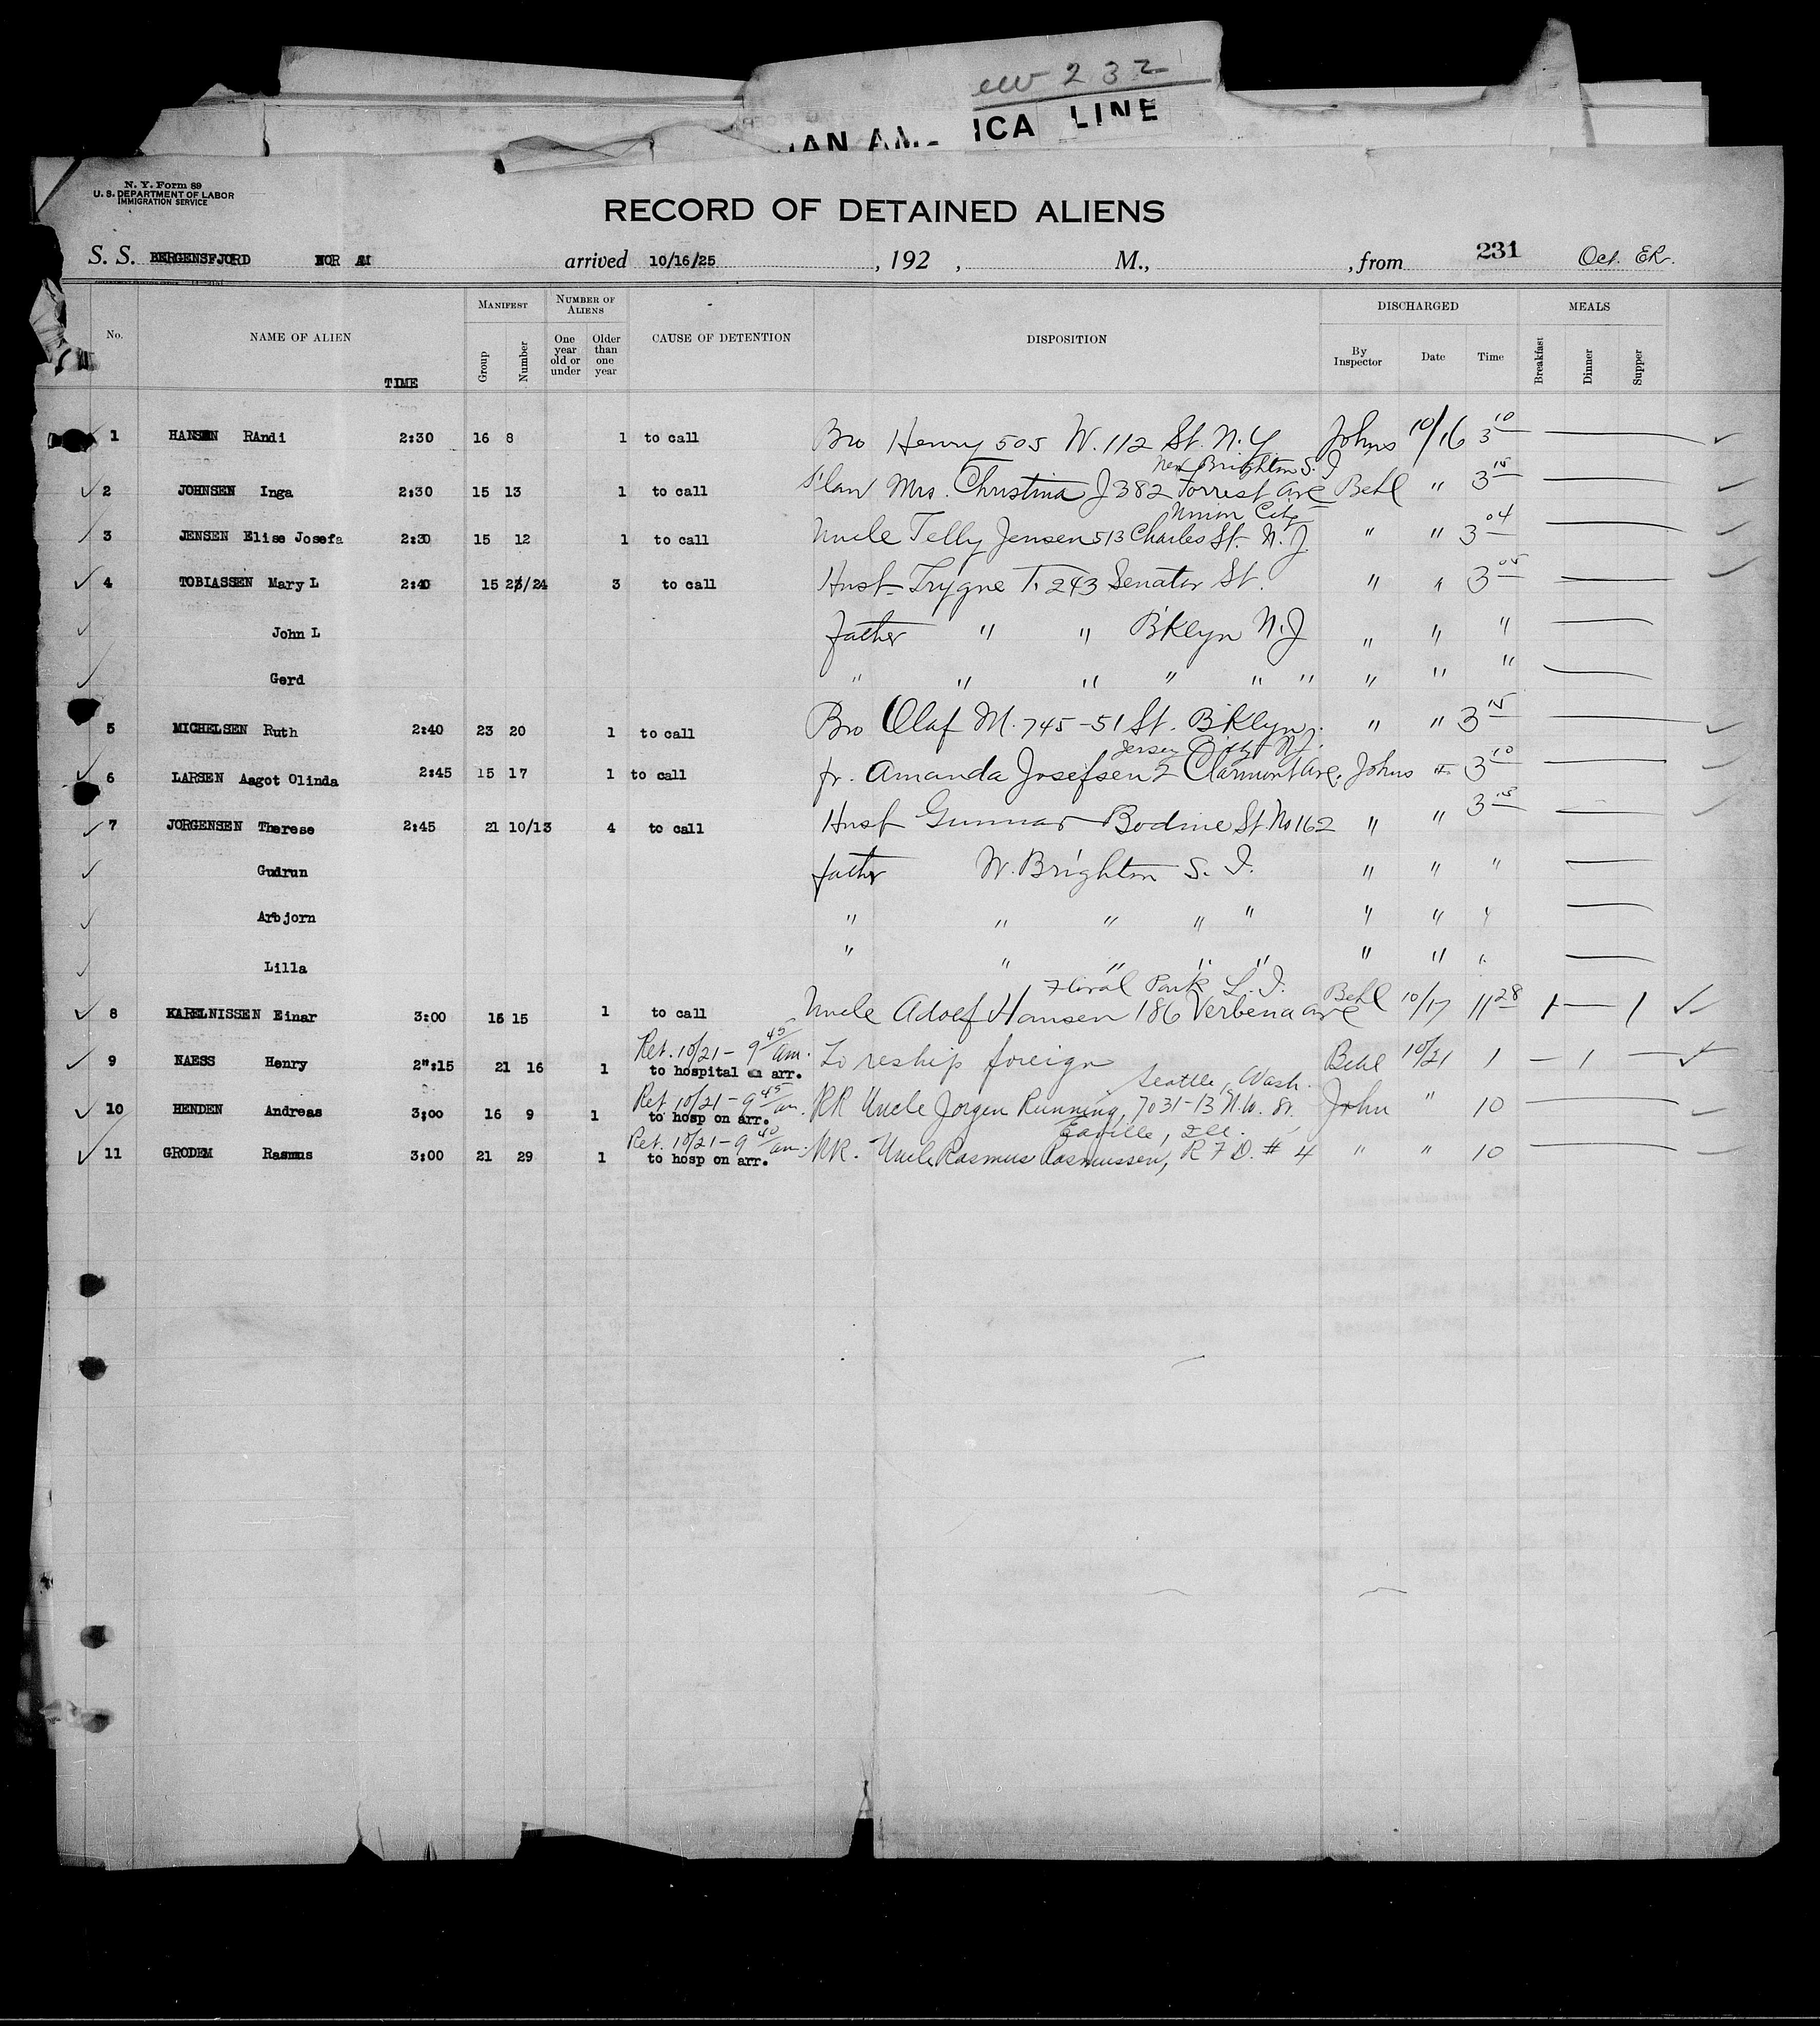 232
ICA LINE
N. Y. Form 89
U. S. DEPARTMENT OF LABOR
IMMIGRATION SERVICE
RECORD OF DETAINED ALIENS
S. S. BERGENSFJORD NOR AM arrived 10/16/25 , 192 , M., , from 231 Oct. ER.
No. NAME OF ALIEN TIME MANIFEST Group Number NUMBER OF ALIENS One year old or under Older than one year CAUSE OF DETENTION DISPOSITION DISCHARGED By Inspector Date Time MEALS Breakfast Dinner Supper
1 HANSEN RAndi 2:30 16 8 1 to call Bro Henry 505 W. 112 St. N.Y Johns 10/16 3 10
New Brighton S. I
2 JOHNSEN Inga 2:30 15 13 1 to call S'law Mrs. Christina J 382 Forrest Ave Behl " 3 15
Union City
3 JENSEN Elise Josefa 2:30 15 12 1 to call Uncle Telly Jensen 513 Charles St. N. J. " " 3 04
4 TOBIASSEN Mary L 2:40 15 22/24 3 to call Husb Trygve T. 243 Senator St. " " 3 05
John L father " " B'klyn N.J " " "
Gerd " " " " " " " " "
5 MICHELSEN Ruth 2:40 23 20 1 to call Bro Olaf M. 745-51 St. B'klyn. " " 3 15
Jersey City N.J.
6 LARSEN Aagot Olinda 2:45 15 17 1 to call fr. Amanda Josefsen 2 Clarmont Ave. Johns " 3 10
7 JORGENSEN Therese 2:45 21 10/13 4 to call Husb Gunnar Bodine St. No 162 " " 3 15
Gudrun father W. Brighton S. I. " " "
Arbjorn " " " " " " " "
Lilla " " " " " " " "
Floral Park L. I.
8 KARELNISSEN Einar 3:00 16 15 1 to call Uncle Adolf Hansen 186 Verbena ave Behl 10/17 11 28 1 — 1
Ret. 10/21 - 9 45/am.
9 NAESS Henry 2":15 21 16 1 to hospital on arr. To reship foreign Behl 10/21 1 — 1 —
Ret. 10/21 - 9 45/am. Seattle, Wash.
10 HENDEN Andreas 3:00 16 9 1 to hosp on arr. RR Uncle Jorgen Running, 7031-13 N.W. St. John " 10
Ret. 10/21 - 9 40/am. Ill.
11 GRODEM Rasmus 3:00 21 29 1 to hosp on arr. RR. Uncle Rasmus Rasmussen, R F D. # 4 " " 10